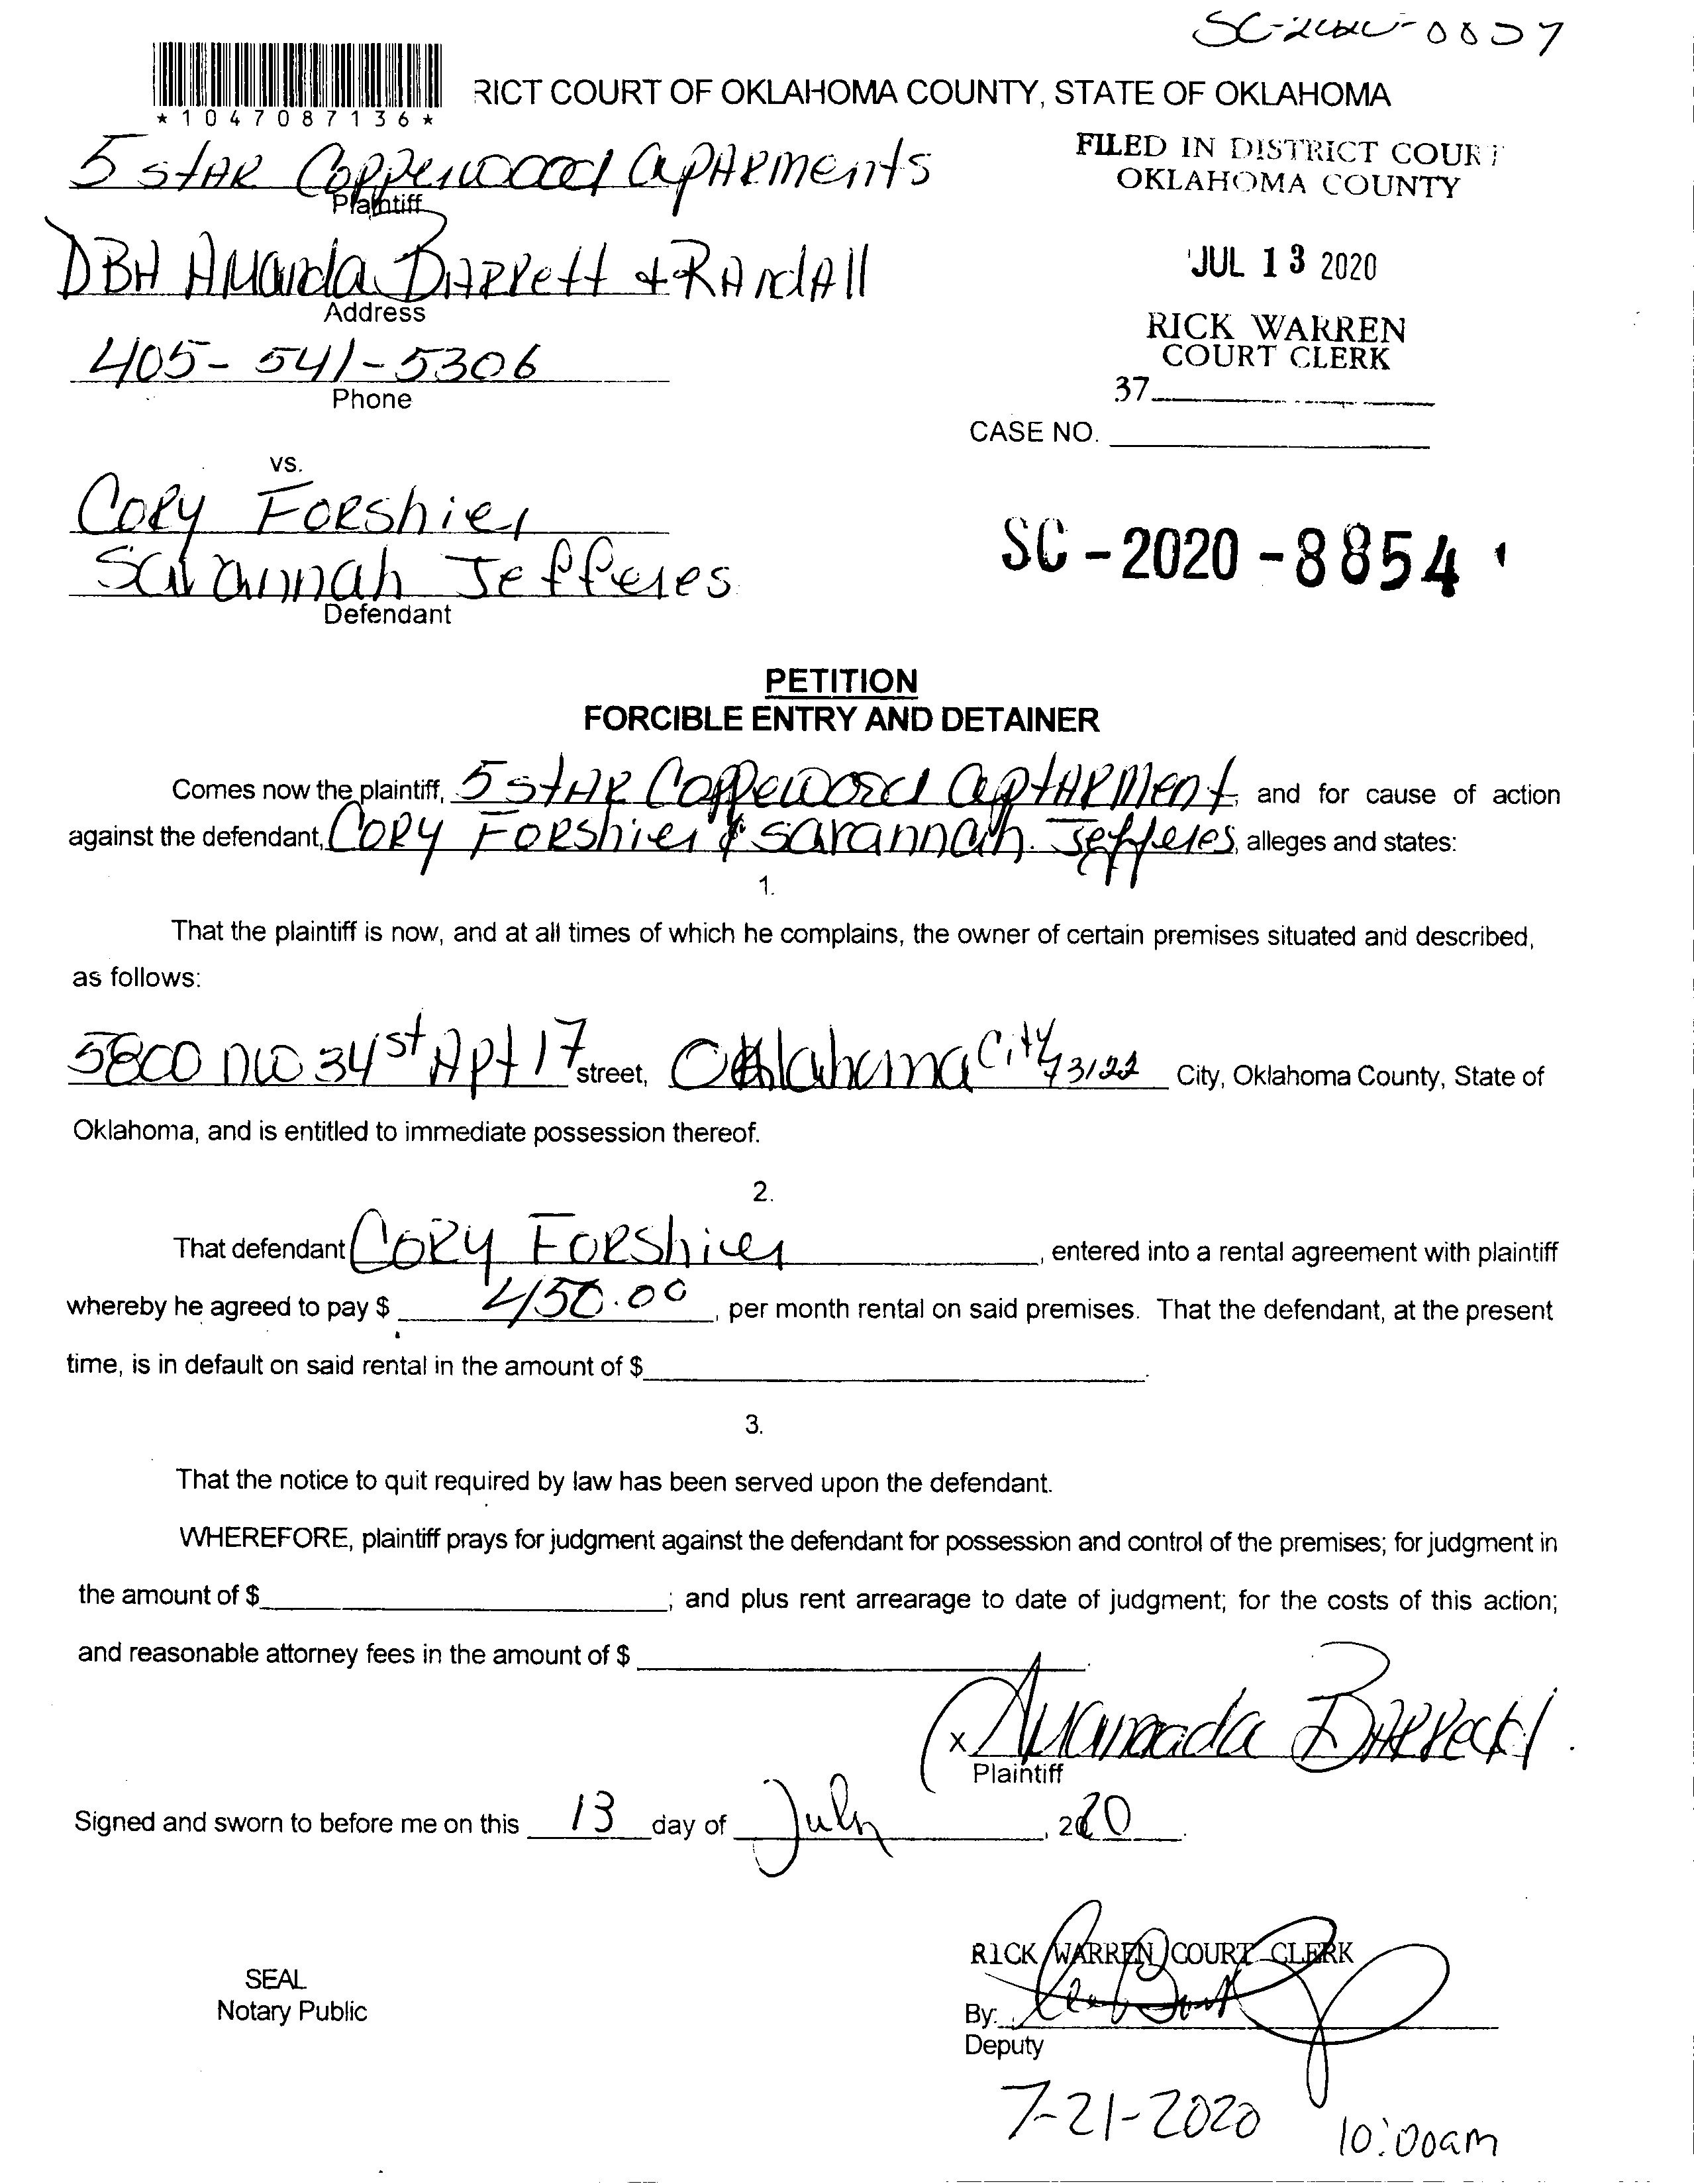 SC-2020-0857
*1047087136*
RICT COURT OF OKLAHOMA COUNTY, STATE OF OKLAHOMA
5 stAR Copperwood ApARments
Plaintiff
FILED IN DISTRICT COURT
OKLAHOMA COUNTY
DBA Amanda BARRett + RAndAll
Address
JUL 13 2020
405-541-5306
Phone
RICK WARREN
COURT CLERK
37
CASE NO.
vs.
CORY FORShier
Savannah Jefferes
Defendant
SC-2020-8854
PETITION
FORCIBLE ENTRY AND DETAINER
Comes now the plaintiff, 5 stAR Coppewood AptARMent, and for cause of action
against the defendant, CORY FORShier & Savannah Jefferes, alleges and states:
1.
That the plaintiff is now, and at all times of which he complains, the owner of certain premises situated and described,
as follows:
5800 NW 34st Apt 17 street, Oklahoma City 73122 City, Oklahoma County, State of
Oklahoma, and is entitled to immediate possession thereof.
2.
That defendant CORY FORShier, entered into a rental agreement with plaintiff
whereby he agreed to pay $ 450.00, per month rental on said premises. That the defendant, at the present
time, is in default on said rental in the amount of $ .
3.
That the notice to quit required by law has been served upon the defendant.
WHEREFORE, plaintiff prays for judgment against the defendant for possession and control of the premises; for judgment in
the amount of $ ; and plus rent arrearage to date of judgment; for the costs of this action;
and reasonable attorney fees in the amount of $ .
x Amanda BARRett
Plaintiff
Signed and sworn to before me on this 13 day of July, 2020.
RICK WARREN COURT CLERK
SEAL
Notary Public
By:
Deputy
7-21-2020 10:00am